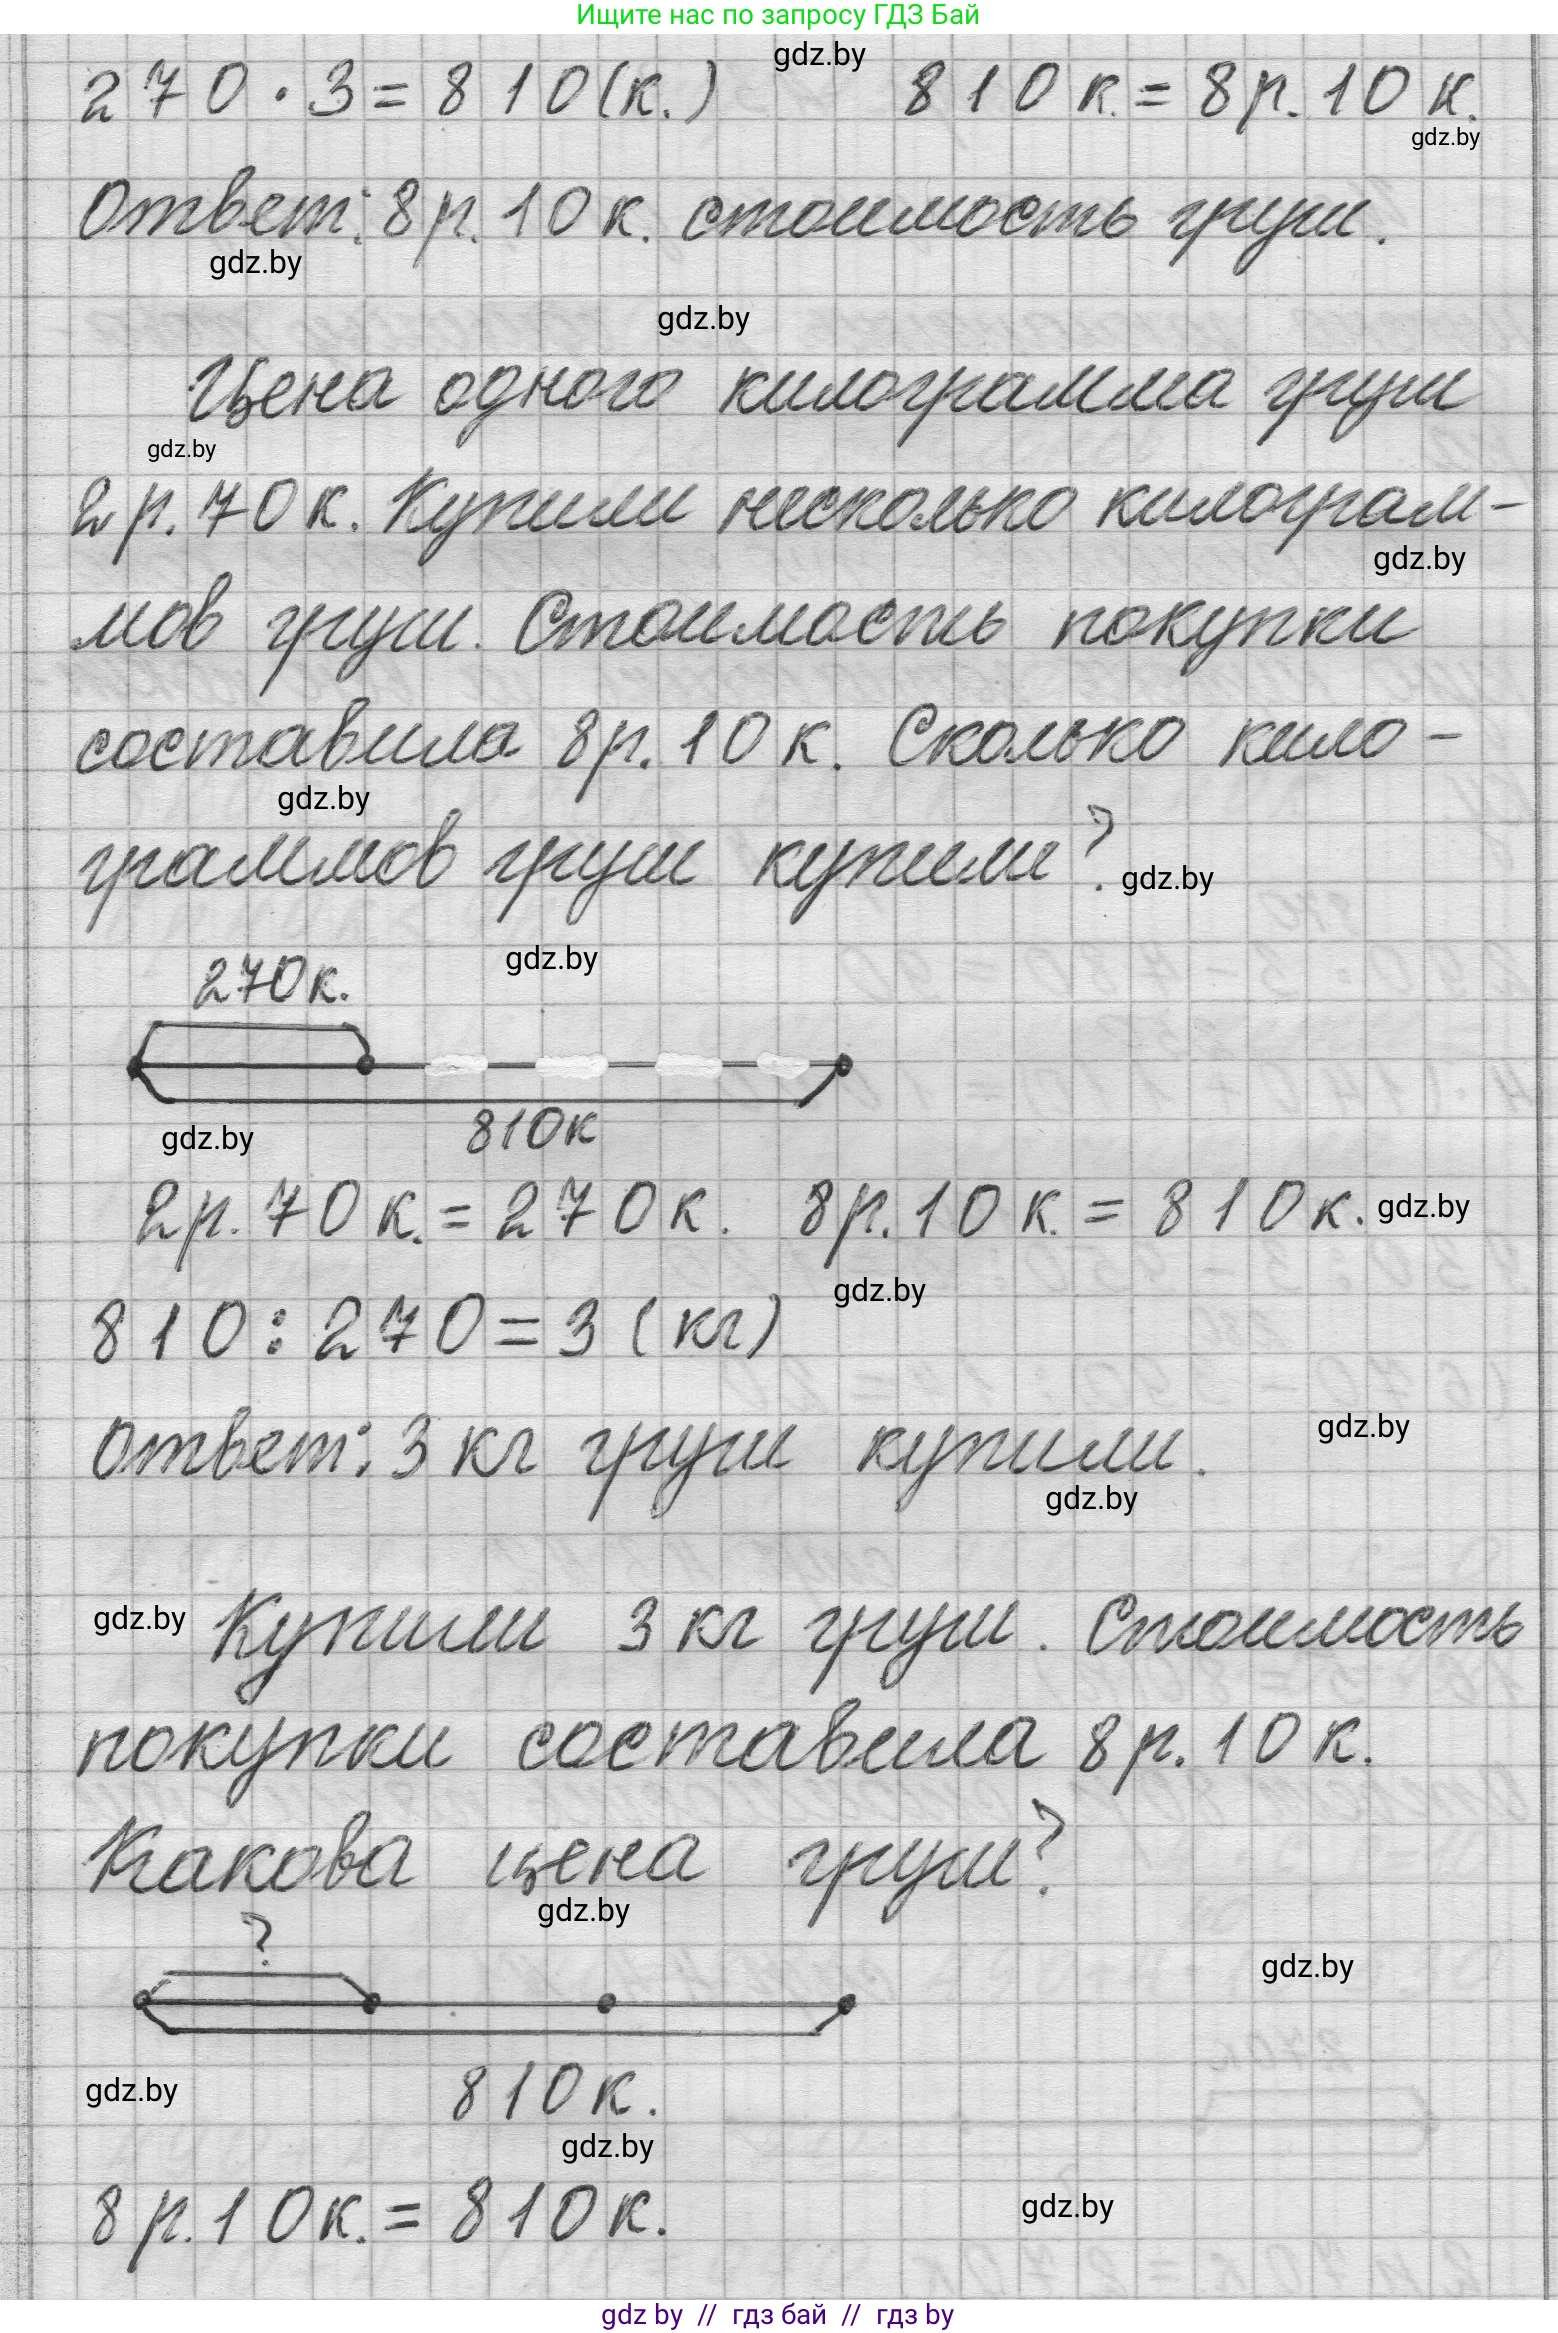 Ищите нас по запросу ГДЗ Бай
gdz.by
270 · 3 = 810 (к.) 810 к. = 8 р. 10 к.
gdz.by
Ответ: 8 р. 10 к. стоимость груш.
gdz.by
gdz.by
Цена одного килограмма груш
gdz.by
2 р. 70 к. Купили несколько килограм-
gdz.by
мов груш. Стоимость покупки
составила 8 р. 10 к. Сколько кило-
gdz.by
граммов груш купили?
gdz.by
gdz.by
270 к.
810 к
gdz.by
2 р. 70 к. = 270 к. 8 р. 10 к. = 810 к.
gdz.by
gdz.by
810 : 270 = 3 (кг)
Ответ: 3 кг груш купили.
gdz.by
gdz.by
gdz.by
Купили 3 кг груш. Стоимость
покупки составила 8 р. 10 к.
Какова цена груш?
gdz.by
?
gdz.by
810 к.
gdz.by
gdz.by
8 р. 10 к. = 810 к.
gdz.by
gdz by // гдз бай // гдз by